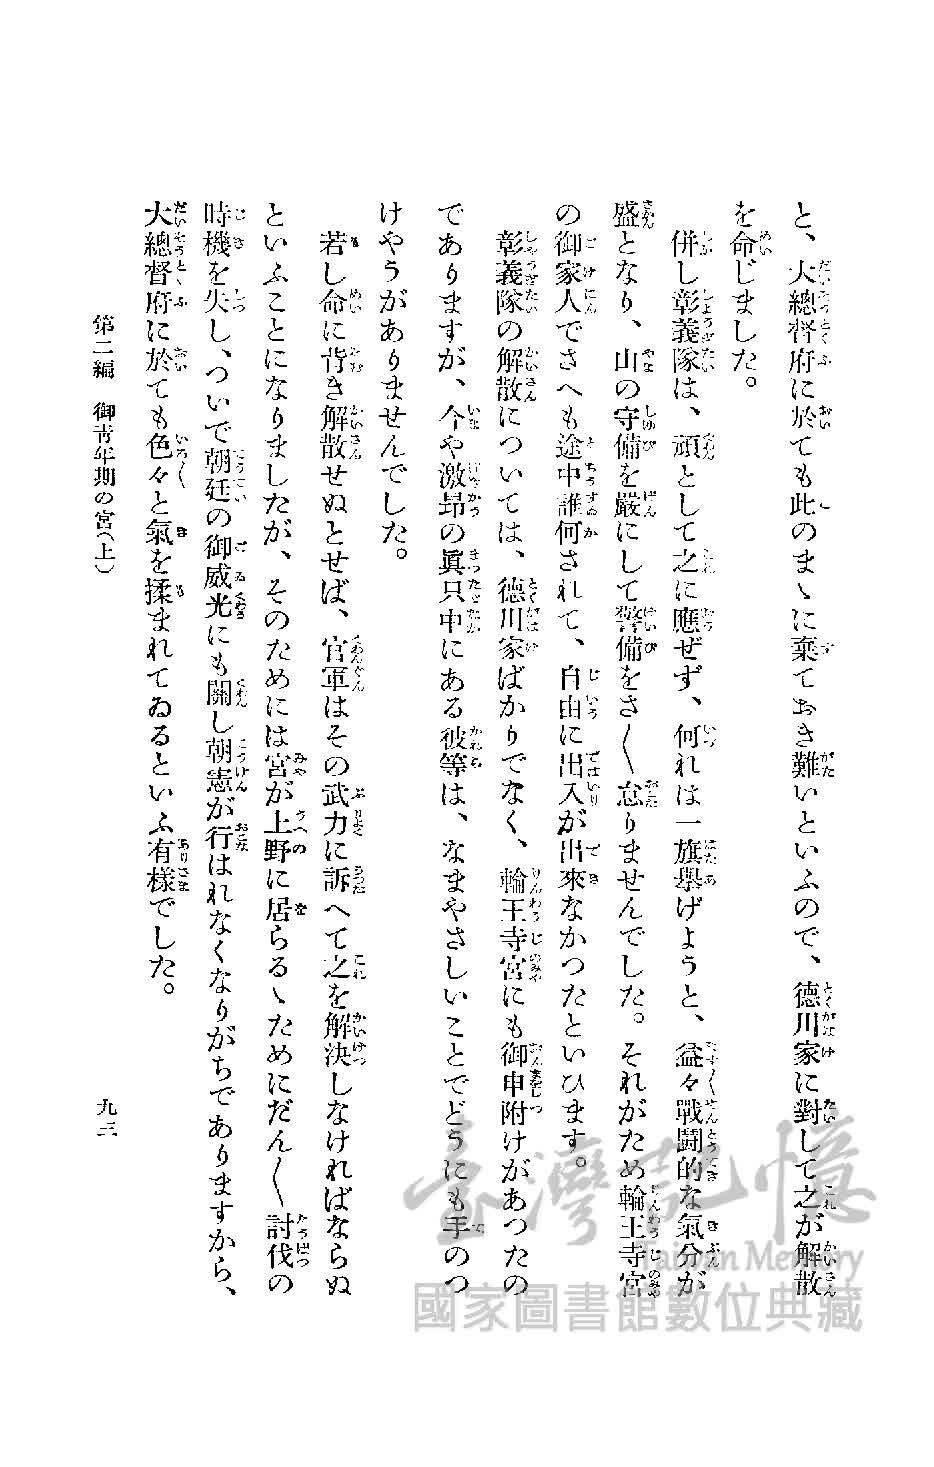 と、大總督府に於ても此のまゝに棄ておき難いといふので、德川家に對して之が解散
を命じました。
併し彰義隊は、頑として之に應ぜず、何れは一旗擧げようと、益々戰鬪的な氣分が
盛となり、山の守備を嚴にして警備をさ〳〵怠りませんでした。それがため輪王寺宮
の御家人でさへも途中誰何されて、自由に出入が出來なかつたといひます。
彰義隊の解散については、德川家ばかりでなく、輪王寺宮にも御申附けがあつたの
でありますが、今や激昂の眞只中にある彼等は、なまやさしいことでどうにも手のつ
けやうがありませんでした。
若し命に背き解散せぬとせば、官軍はその武力に訴へて之を解決しなければならぬ
といふことになりましたが、そのためには宮が上野に居らるゝためにだん〳〵討伐の
時機を失し、ついで朝廷の御威光にも關し朝憲が行はれなくなりがちでありますから、
大總督府に於ても色々と氣を揉まれてゐるといふ有樣でした。
第二編　御靑年期の宮（上）
九三
臺灣記憶
Taiwan Memory
國家圖書館數位典藏